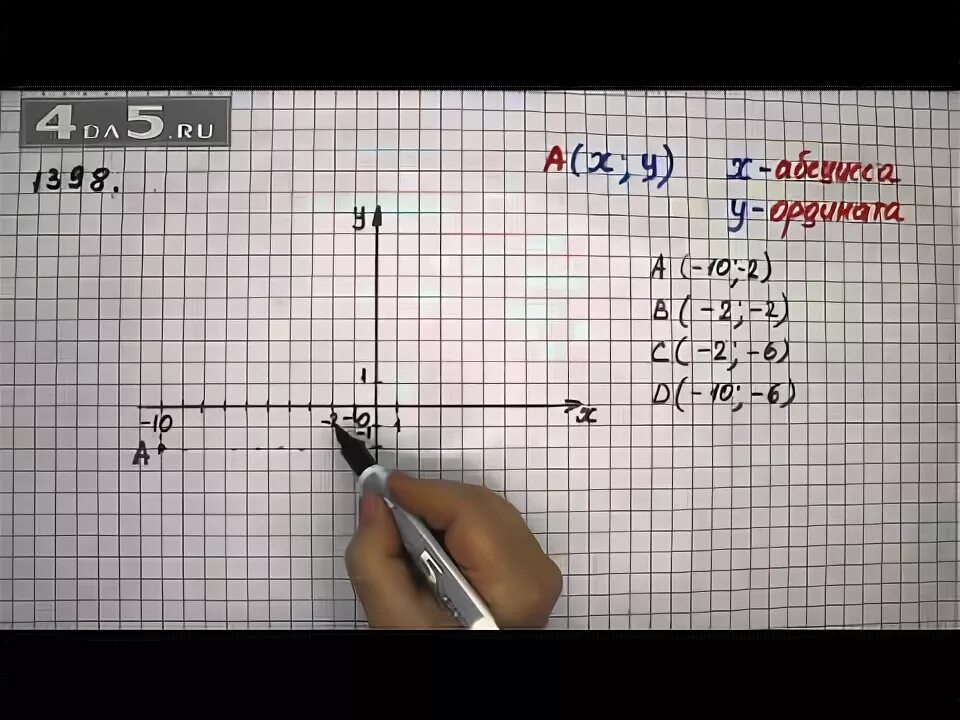 4DA5.RU
1398.
A(x; y)
x - абсцисса
y - ордината
A (-10; -2)
B (-2; -2)
C (-2; -6)
D (-10; -6)
y
1
-10 -2 -1 0 1 x
-1
A